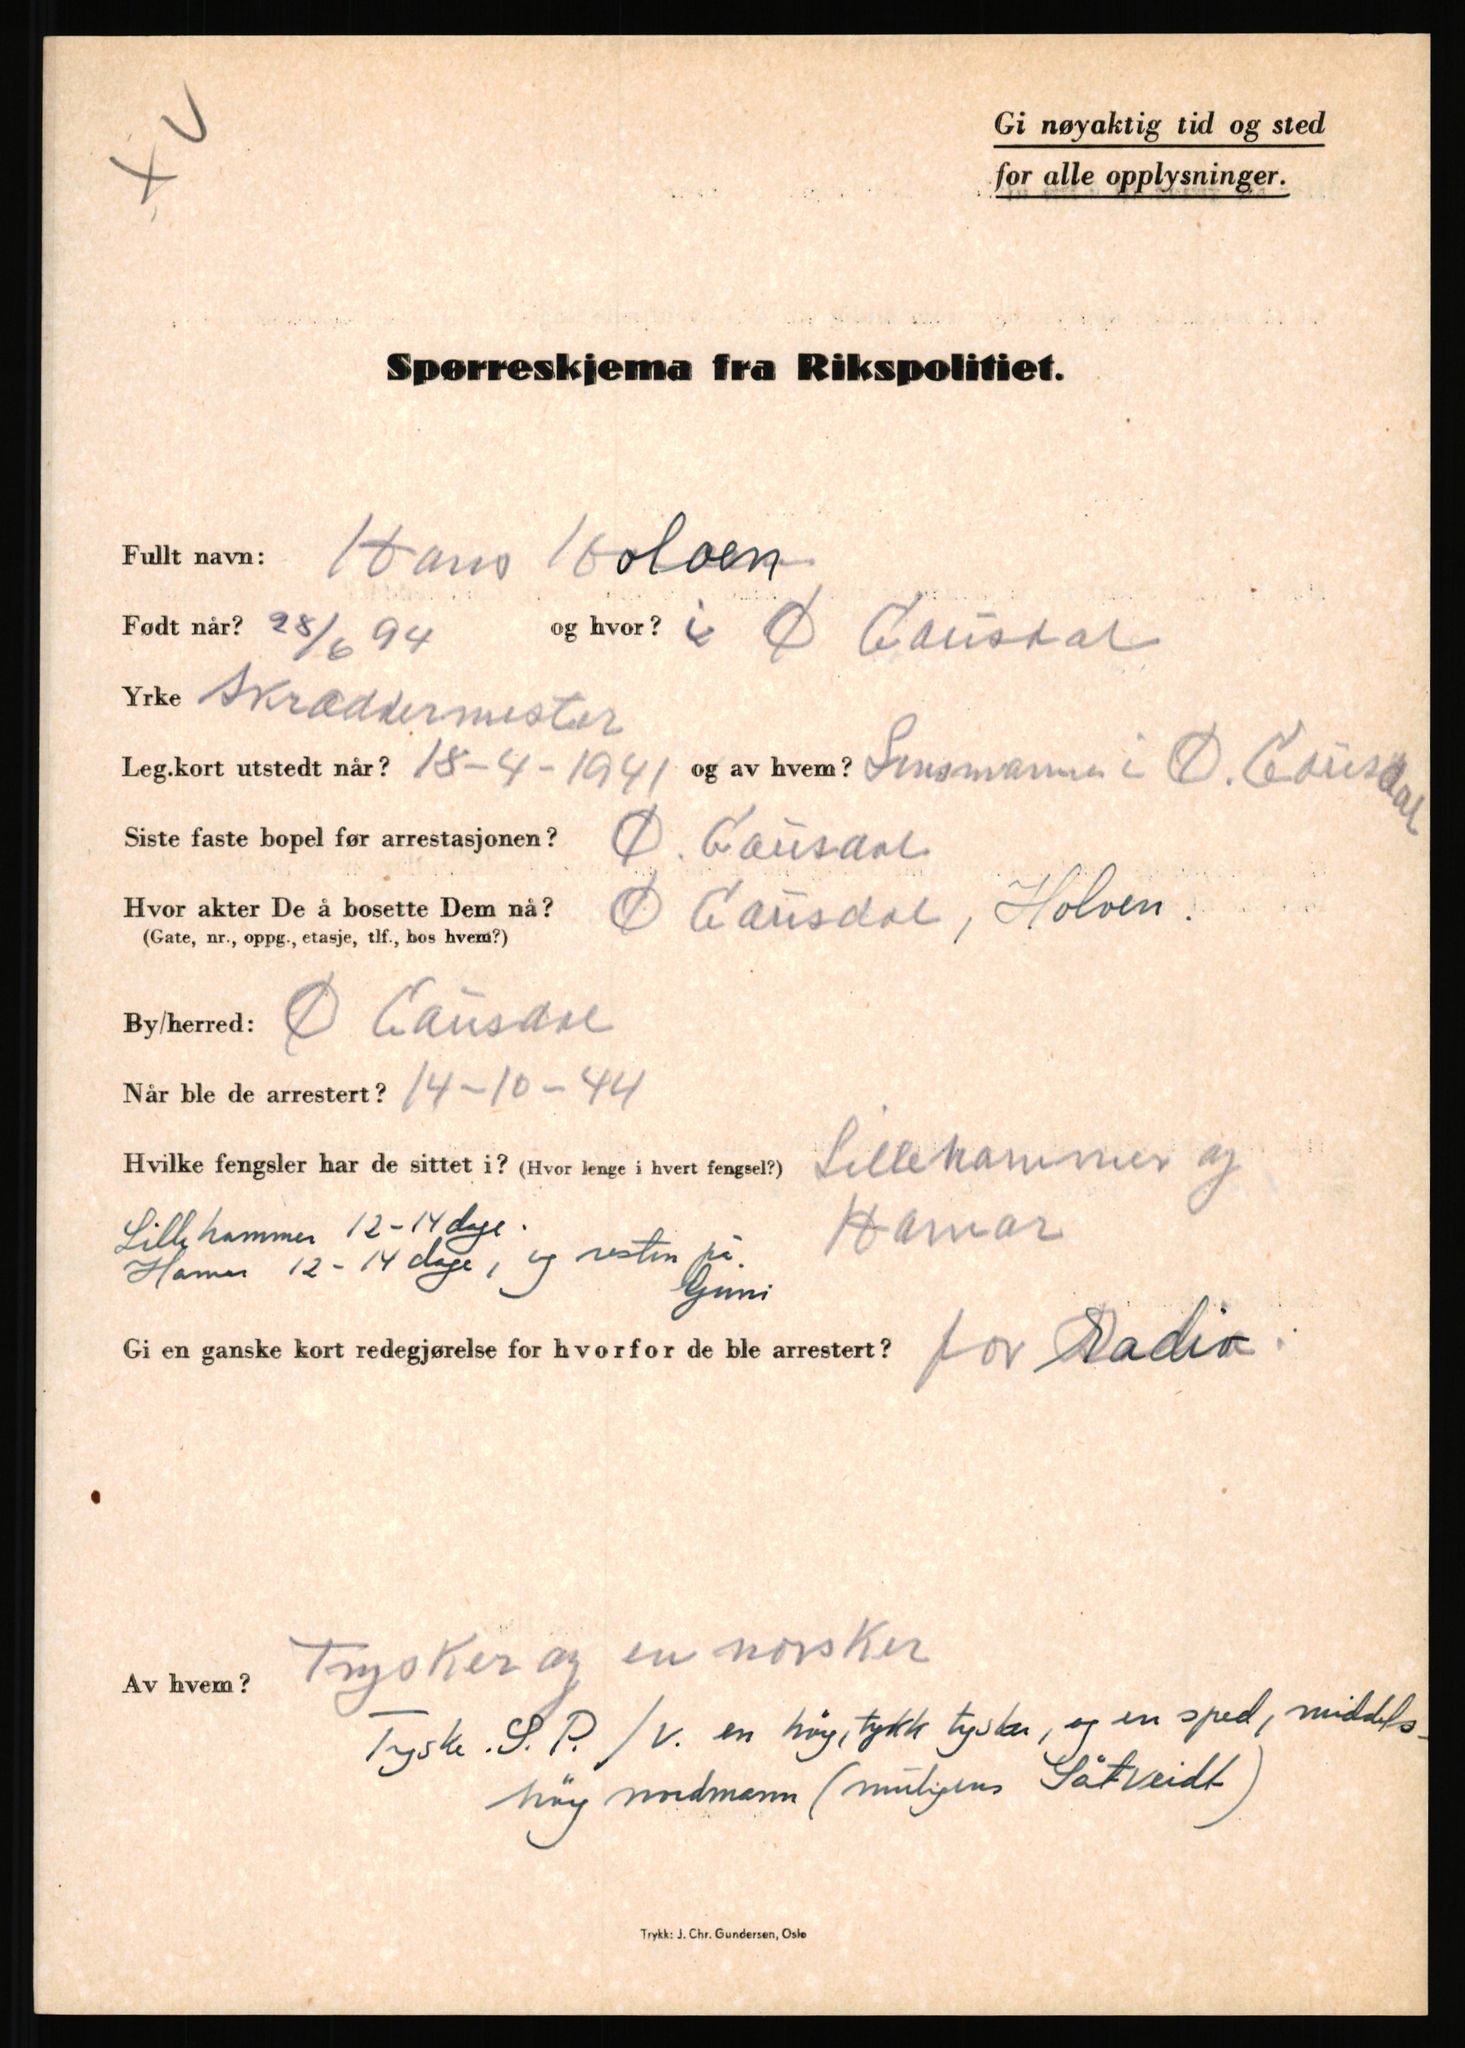 X V
Gi nøyaktig tid og sted
for alle opplysninger.
Spørreskjema fra Rikspolitiet.
Fullt navn: Hans Holven
Født når? 28/6 94 og hvor? i Ø Gausdal
Yrke Skræddermester
Leg.kort utstedt når? 18-4-1941 og av hvem? i Ø. Gausdal
Siste faste bopel før arrestasjonen? Ø. Gausdal
Hvor akter De å bosette Dem nå? Ø Gausdal, Holven.
(Gate, nr., oppg., etasje, tlf., hos hvem?)
By/herred: Ø Gausdal
Når ble de arrestert? 14-10-44
Hvilke fengsler har de sittet i? (Hvor lenge i hvert fengsel?) Lillehammer og
Hamar
Lillehammer 12-14 dage.
Hamar 12-14 dage, og resten på
Grini
Gi en ganske kort redegjørelse for hvorfor de ble arrestert? for Radio.
Av hvem? Tysker og en norsker
Tyske. S. P. /v. en høy, tykk tysker, og en sped, middels-
høy nordmann (muligens Såtveidt)
Trykk: J. Chr. Gundersen, Oslo